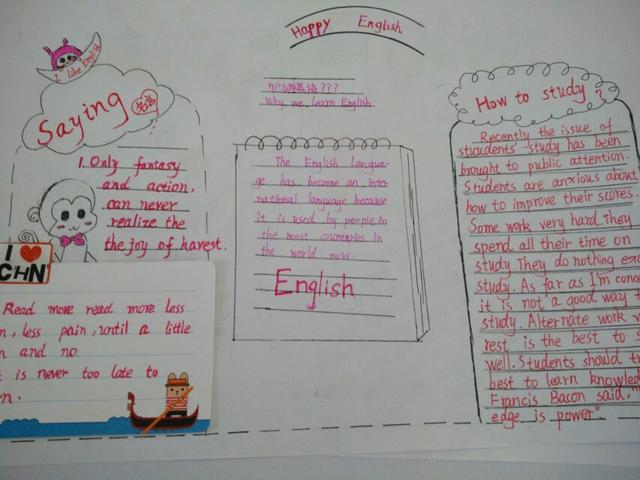 Happy English
I like English
Saying
1. Only fantasy
and action,
can never
realize the
the joy of harest.
I
CHN
Read more read more less
less pain, until a little
and no
is never too late to
为什么学英语???
Why we learn English
The English Langua-
ge has become an inter
national language because
it is used by people in
the most countries in
the world now.
English
How to study?
Recently the issue of
stuudents' study has been
brought to public attention.
Students are anxious about
how to improve their scores.
Some work very hard. They
spend all their time on
study. They do nothing
study. As far as I'm
it is not a good way
study. Alternate work
rest is the best to
well. Students should
best to learn
Francis Bacon said, "
edge is power"